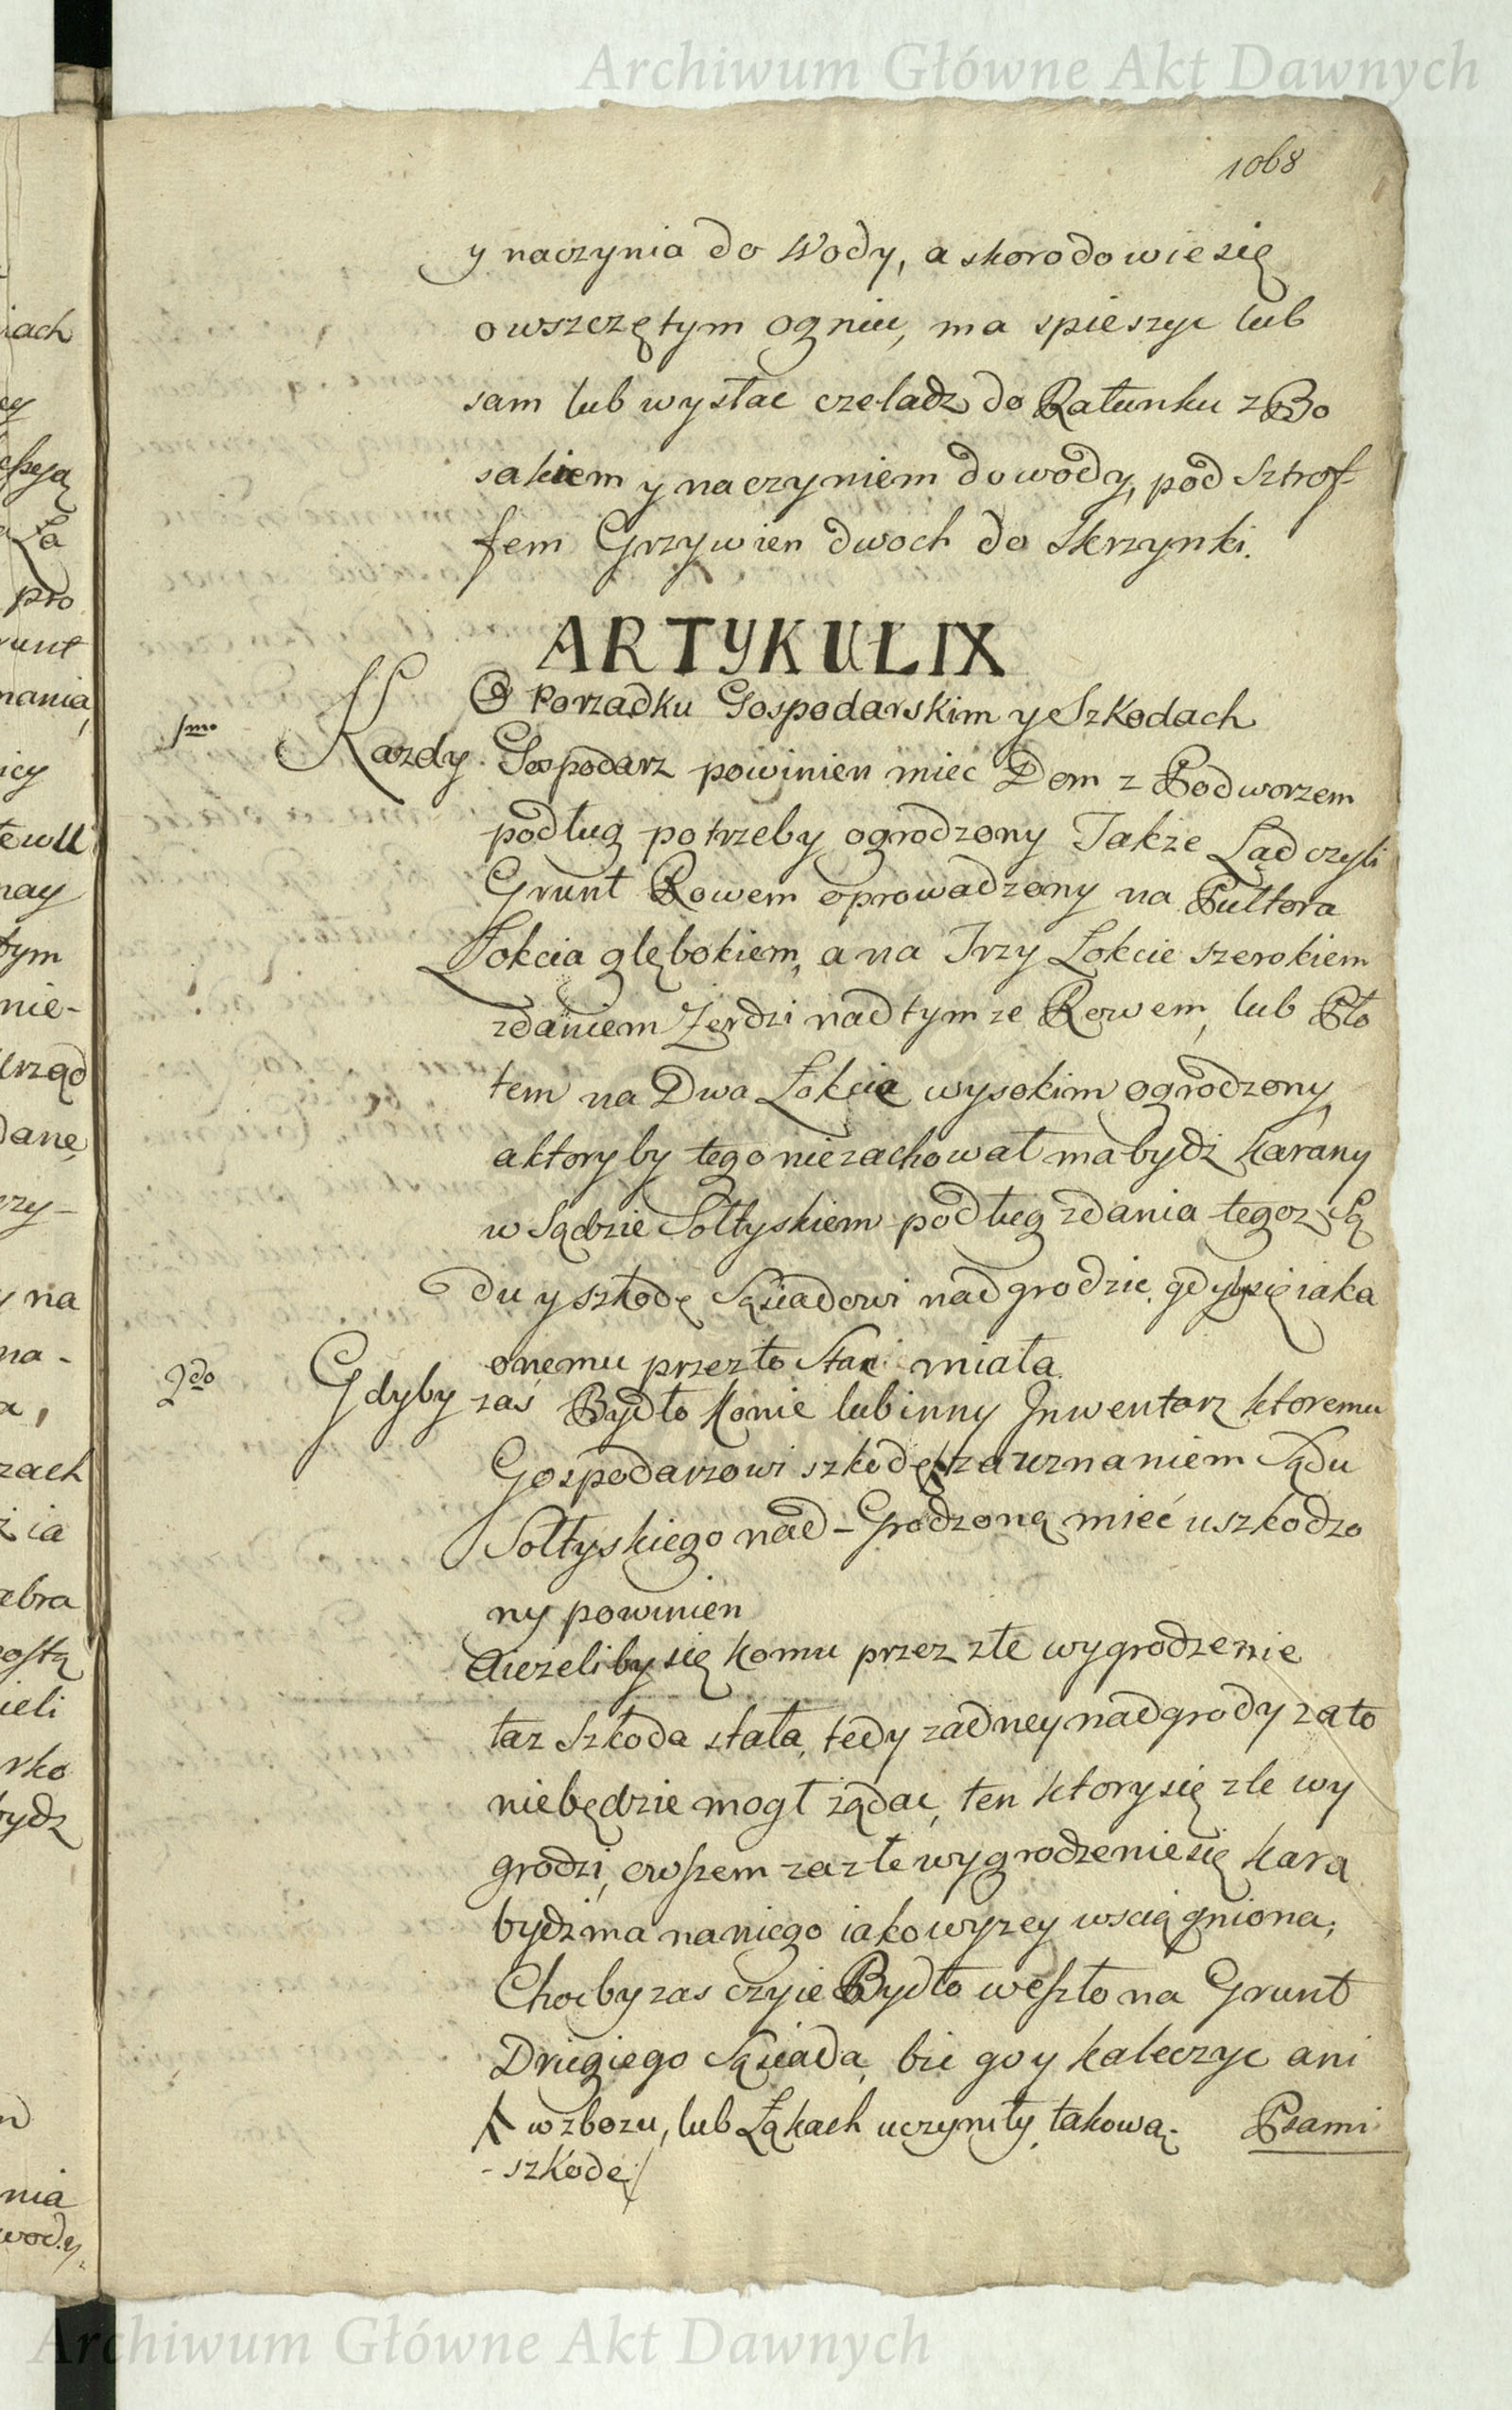 Archiwum Główne Akt Dawnych
1068
y naczynia do Wody, a skoro dowie się
o wszczętym ogniu, ma spieszyc lub
sam lub wysłac czeladz do Ratunku z Bo
sakiem y naczyniem do wody, pod Sztrof-
fem Grzywien dwoch do Skrzynki.
ARTYKUŁ IX
O Porządku Gospodarskim y Szkodach
1mo Kazdy Gospodarz powinien miec Dom z Podworzem
podług potrzeby ogrodzony Takze Ląd czyli
Grunt Rowem oprowadzony na Pułtora
Łokcia głębokiem, a na Trzy Łokcie szerokiem
zdaniem Zerdzi nad tym ze Rowem, lub Pło
tem na Dwa Łokcie wysokim ogrodzony,
a ktoryby tego niezachował ma bydz karany
w Sądzie Sołtyskiem podług zdania tegoz Są
du y szkodę Sąsiadowi nadgrodzic, gdyby się iaka
onemu przez to Stac miała.
2do Gdyby zaś Bydło Konie lub inny Inwentarz ktoremu
Gospodarzowi szkodę za uznaniem Sądu
Sołtyskiego nad-Grodzoną mieć uszkodzo
ny powinien
A iezeliby się komu przez złe wygrodzenie
taz Szkoda stała, tedy zadney nadgrody za to
niebędzie mogł ządac, ten ktory się zle wy
grodzi, owszem za złe wygrodzenie się kara
bydz ma na niego iako wyzey wsciągniona;
Chocby zas czyie Bydło weszło na Grunt
Drugiego Sąsiada, bic go y kaleczyc ani
w zbozu, lub Łąkach uczyniły takową Psami
- szkodę/
iach
ey
Ła
pro
runt
mania,
icy
nay
tym
nie-
Urząd
dane,
rzy-
y na
na-
a,
zach
z ia
ebra
ieli
rko
bydz
nia
wody,
Archiwum Główne Akt Dawnych